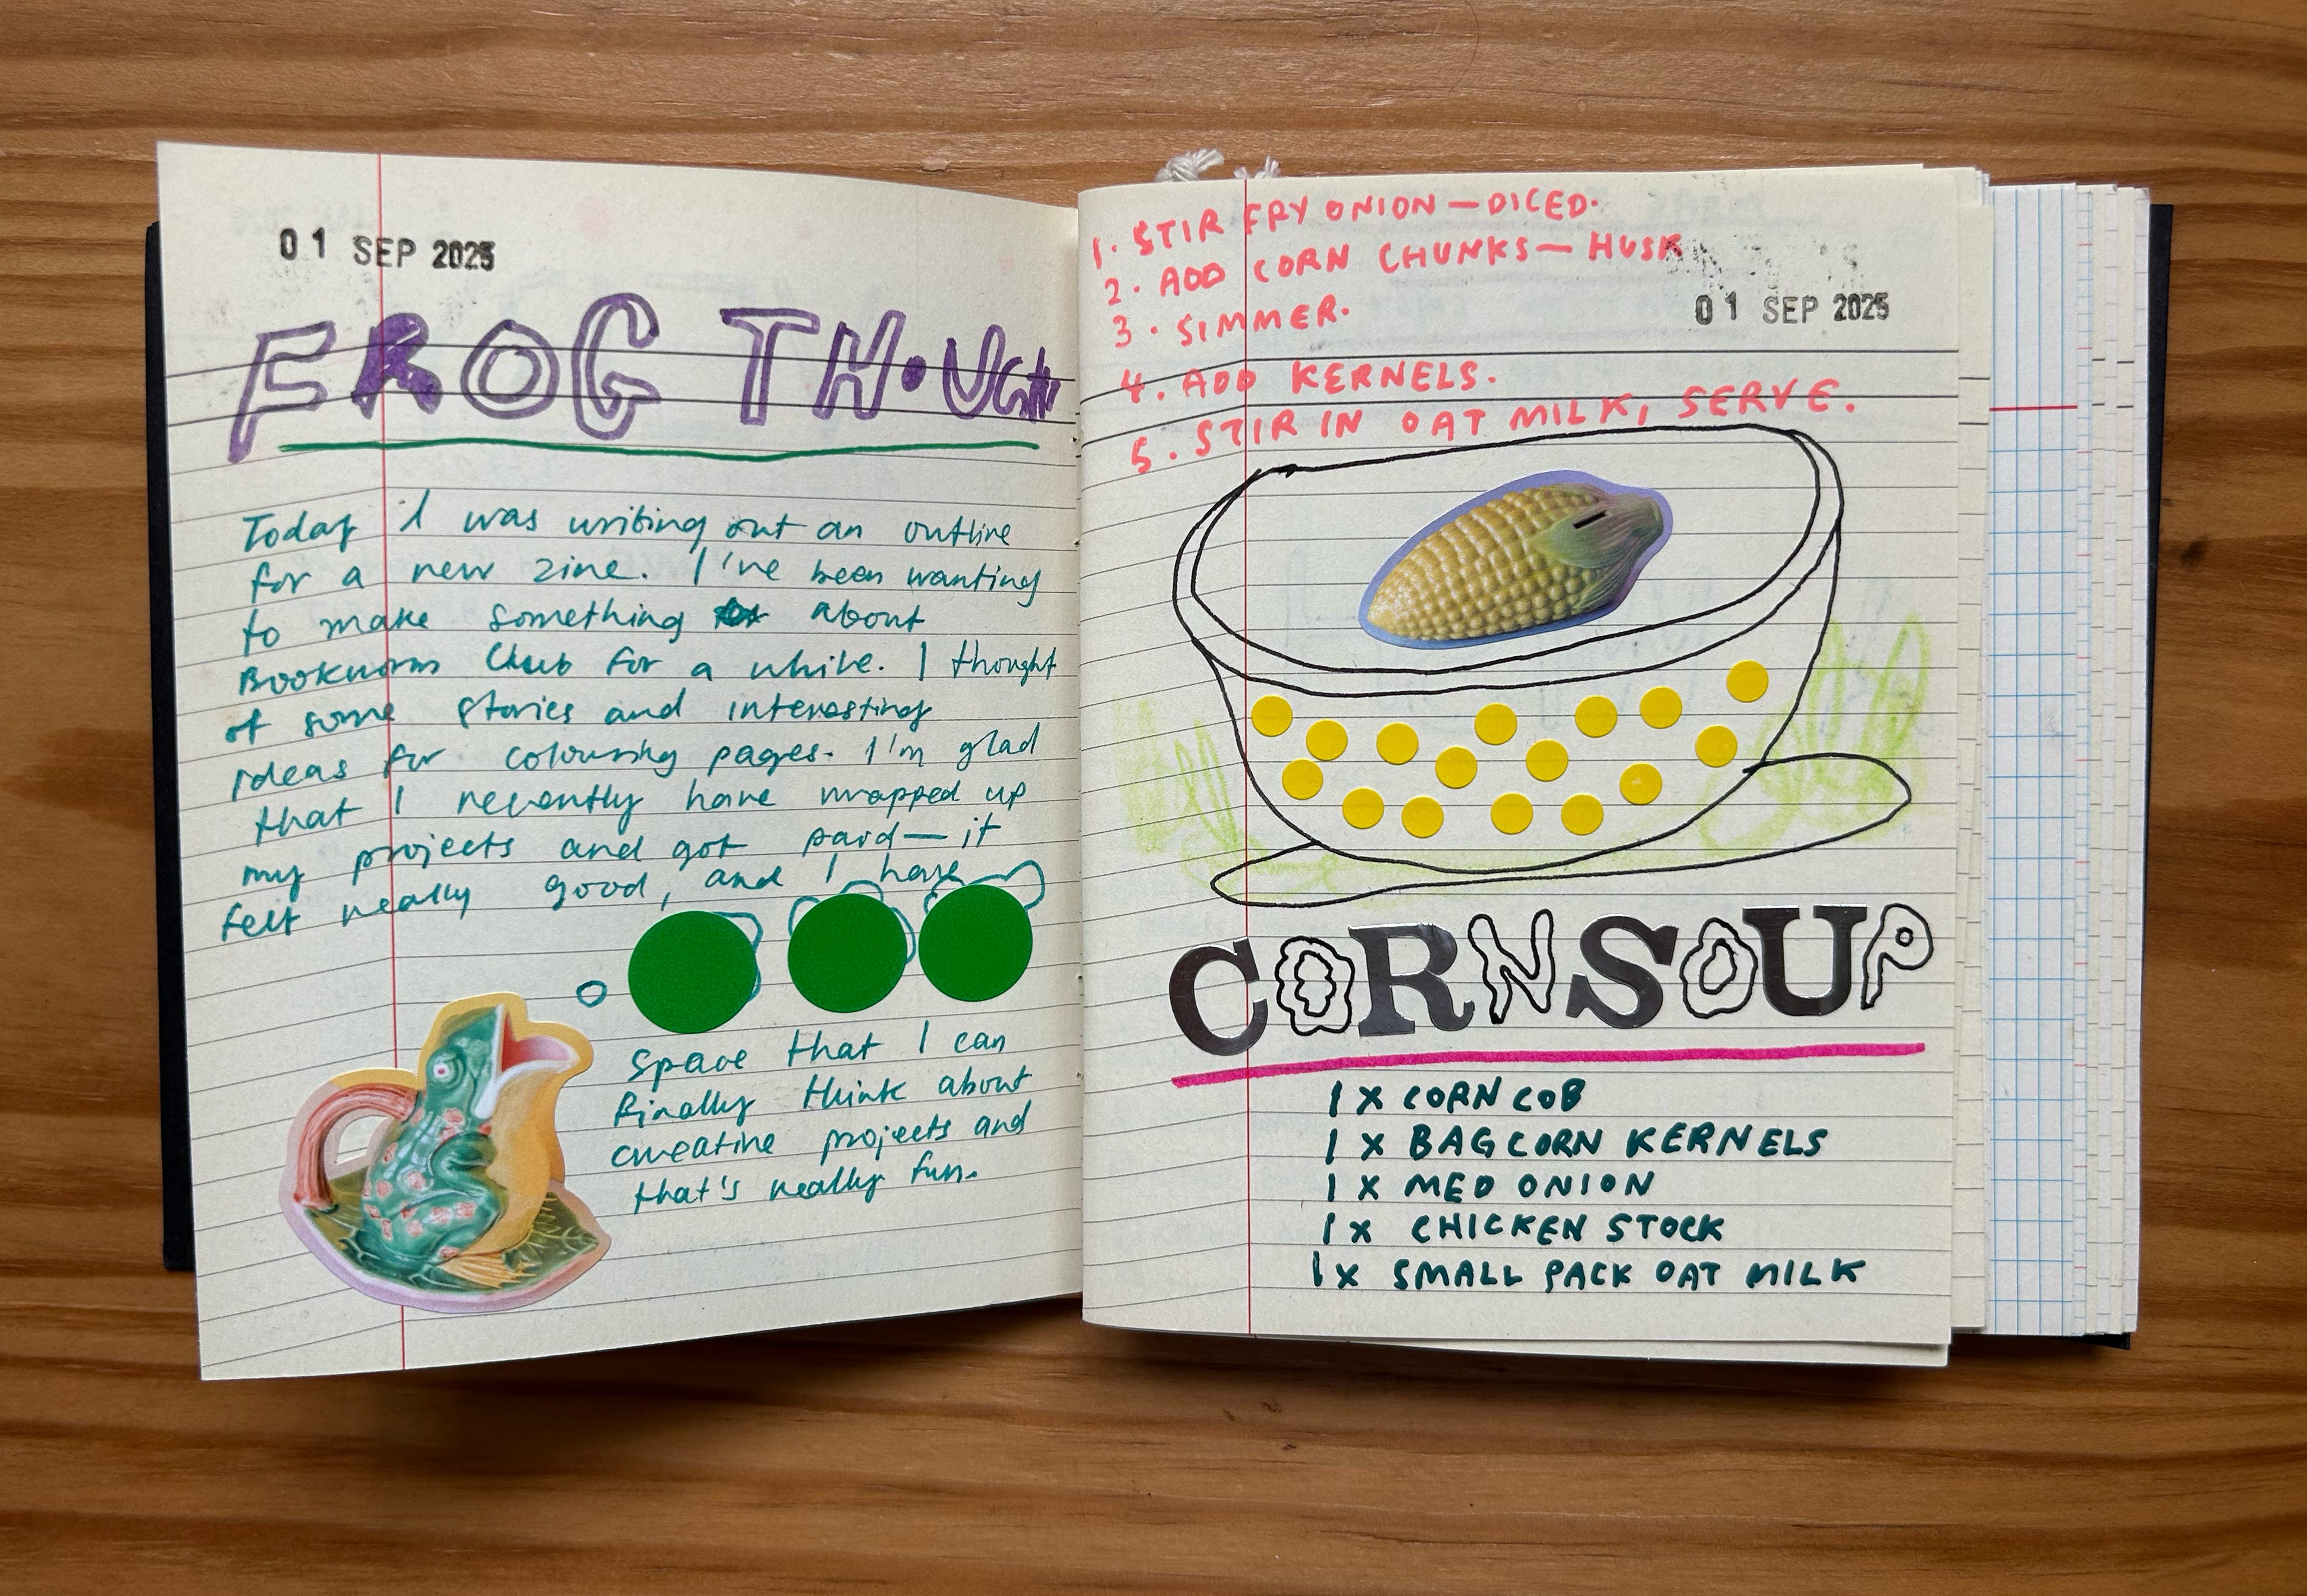 01 SEP 2025
FROG THOUGHTS
Today I was writing out an outline
for a new zine. I've been wanting
to make something about
Bookworm Club for a while. I thought
of some stories and interesting
ideas for colouring pages. I'm glad
that I recently have wrapped up
my projects and got paid— it
felt really good, and I have
space that I can
finally think about
creative projects and
that's really fun.
1. STIR FRY ONION — DICED.
2. ADD CORN CHUNKS — HUSK
01 SEP 2025
3. SIMMER.
4. ADD KERNELS.
5. STIR IN OAT MILK, SERVE.
CORN SOUP
1 x CORN COB
1 x BAG CORN KERNELS
1 x MED ONION
1 x CHICKEN STOCK
1 x SMALL PACK OAT MILK